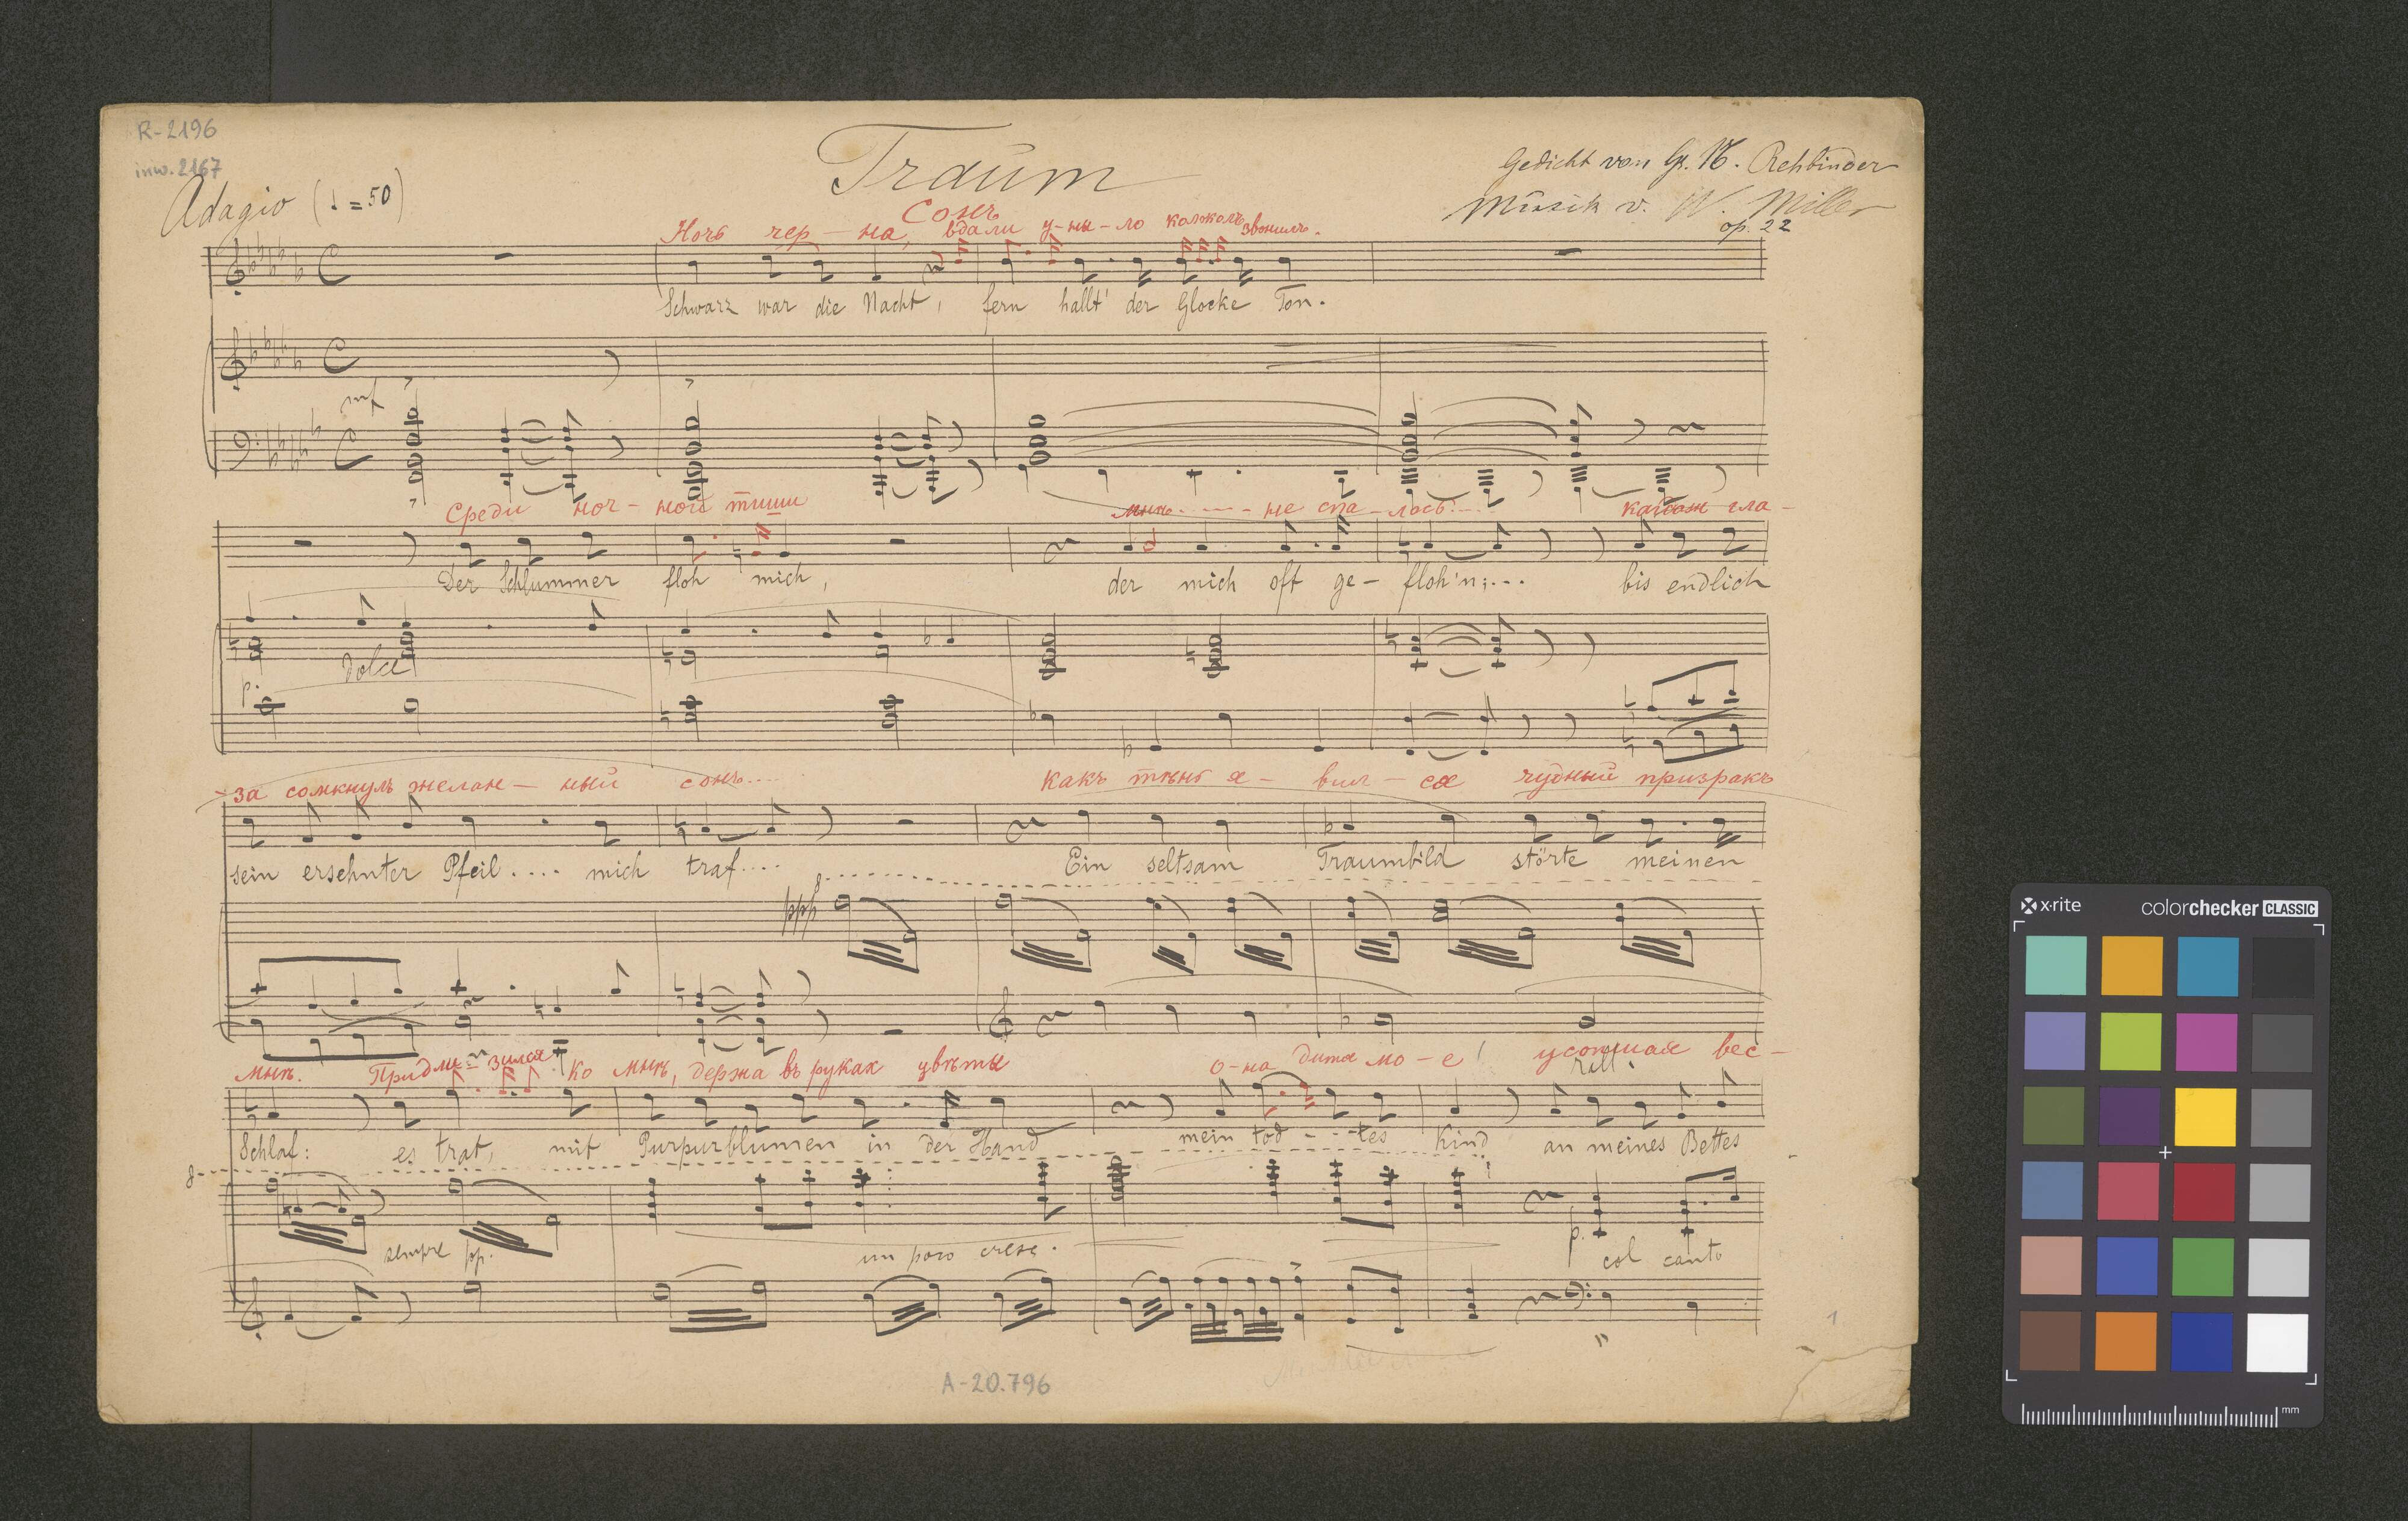 R-2196
inw. 2167
Traum
Сонъ
Gedicht von Gr. N. Rehbinder
Musik v. W. Miller
op. 22
Adagio (♩ = 50)
Ночь чер - на, вдали у - ны - ло колоколъ звонилъ.
Schwarz war die Nacht, fern hallt' der Glocke Ton.
mf
Среди ноч - ной тиши мнѣ - - - - не спа - лось...
Der Schlummer floh mich, der mich oft ge - floh'n;... bis endlich
гла -
p. dolce
за сомкнулъ желан - ный сонъ....
какъ тѣнь я - вил - ся чудный призракъ
sein ersehnter Pfeil.... mich traf... Ein seltsam Traumbild störte meinen
8
ppp
мнѣ. ко мнѣ, держа въ руках цвѣты о - на дитя мо - е! усопшая вес -
rall.
Schlaf: es trat, mit Purpurblumen in der Hand mein tod - - tes Kind an meines Bettes
8
sempre pp. un poco cresc. p. col canto
1
A-20.796
x·rite
colorchecker CLASSIC
mm